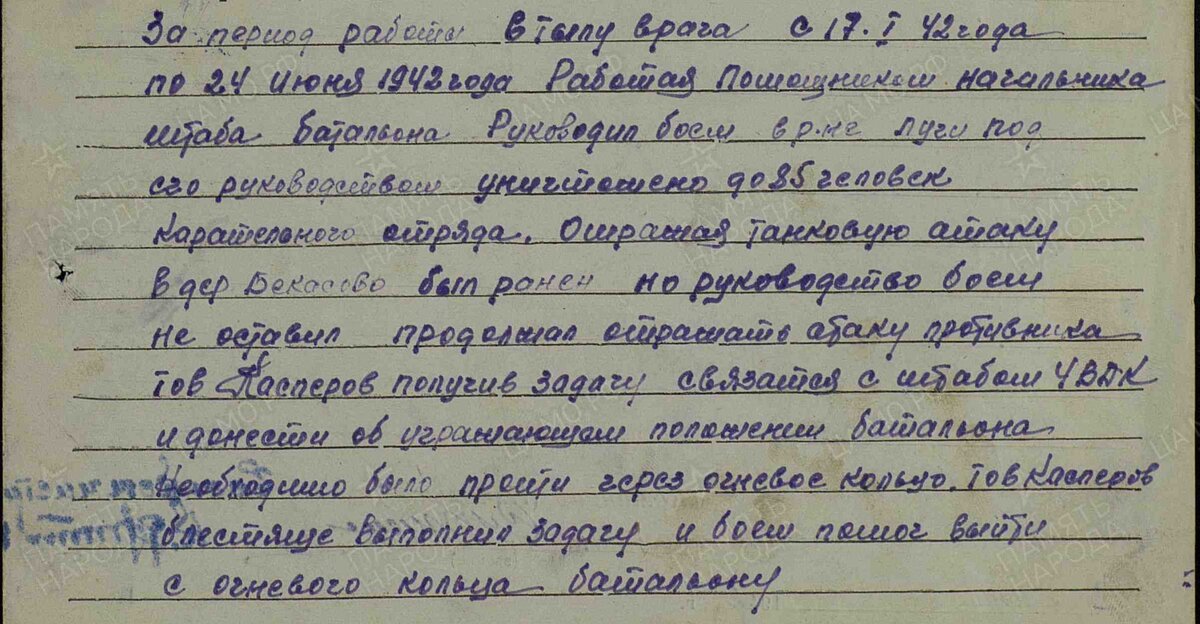 За период работы в тылу врага с 17. I 42 года
по 24 июня 1942 года Работая Помощником начальника
штаба батальона Руководил боем в р-не Луги под
его руководством уничтожено до 85 человек
карательного отряда. Отражая танковую атаку
в дер Бекасово был ранен но руководство боем
не оставил продолжал отражать атаку противника
тов Касперов получив задачу связатся с штабом 4 ВДК
и донести об угражающем положении батальона
Необходимо было пройти через огневое кольцо. Тов Касперов
блестяще выполнил задачу и боем помог выйти
с огневого кольца батальону